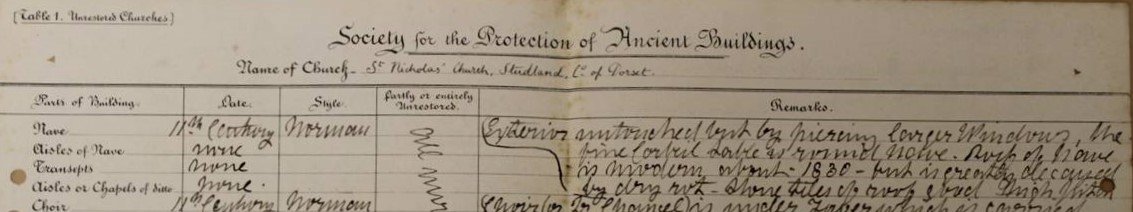 [Table 1. Unrestored Churches.]
Society for the Protection of Ancient Buildings.
Name of Church - St Nicholas' Church, Studland, Co. of Dorset.
Parts of Building. Date. Style. Partly or entirely Unrestored. Remarks.
Nave 11th Century Norman Exterior untouched but by piercing larger Windows. The
Aisles of Nave none fine corbel table is round Nave. Roof of Nave
Transepts none is modern about - 1830 - but is greatly decayed
Aisles or Chapels of ditto none. by dry rot - Stone tiles of roof good.
Choir 11th Century Norman (Choir or Chancel) is under